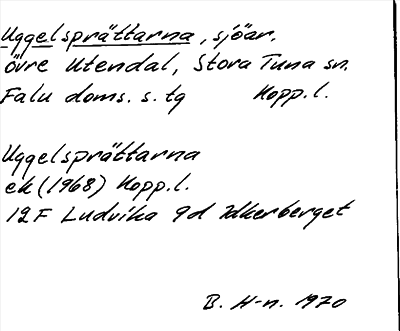 Uggelsprättarna, sjöar,
övre Utendal, Stora Tuna sn.
Falu doms. s. tg Kopp. l.
Uggelsprättarna
ek (1968) Kopp. l.
12F Ludvika 9d Idkerberget
B. H-n. 1970